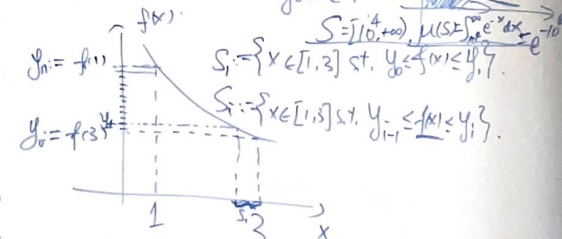 f(x)
S=[10⁴,+∞), μ(S)=∫e⁻ˣdx=e⁻¹⁰
yₙ:=f(1)
S₁:={x∈[1,3] s.t. y₀≤f(x)≤y₁}.
Sᵢ:={x∈[1,3] s.t. yᵢ₋₁≤f(x)≤yᵢ}.
y₀:=f(3) y₁
1
S₁
x